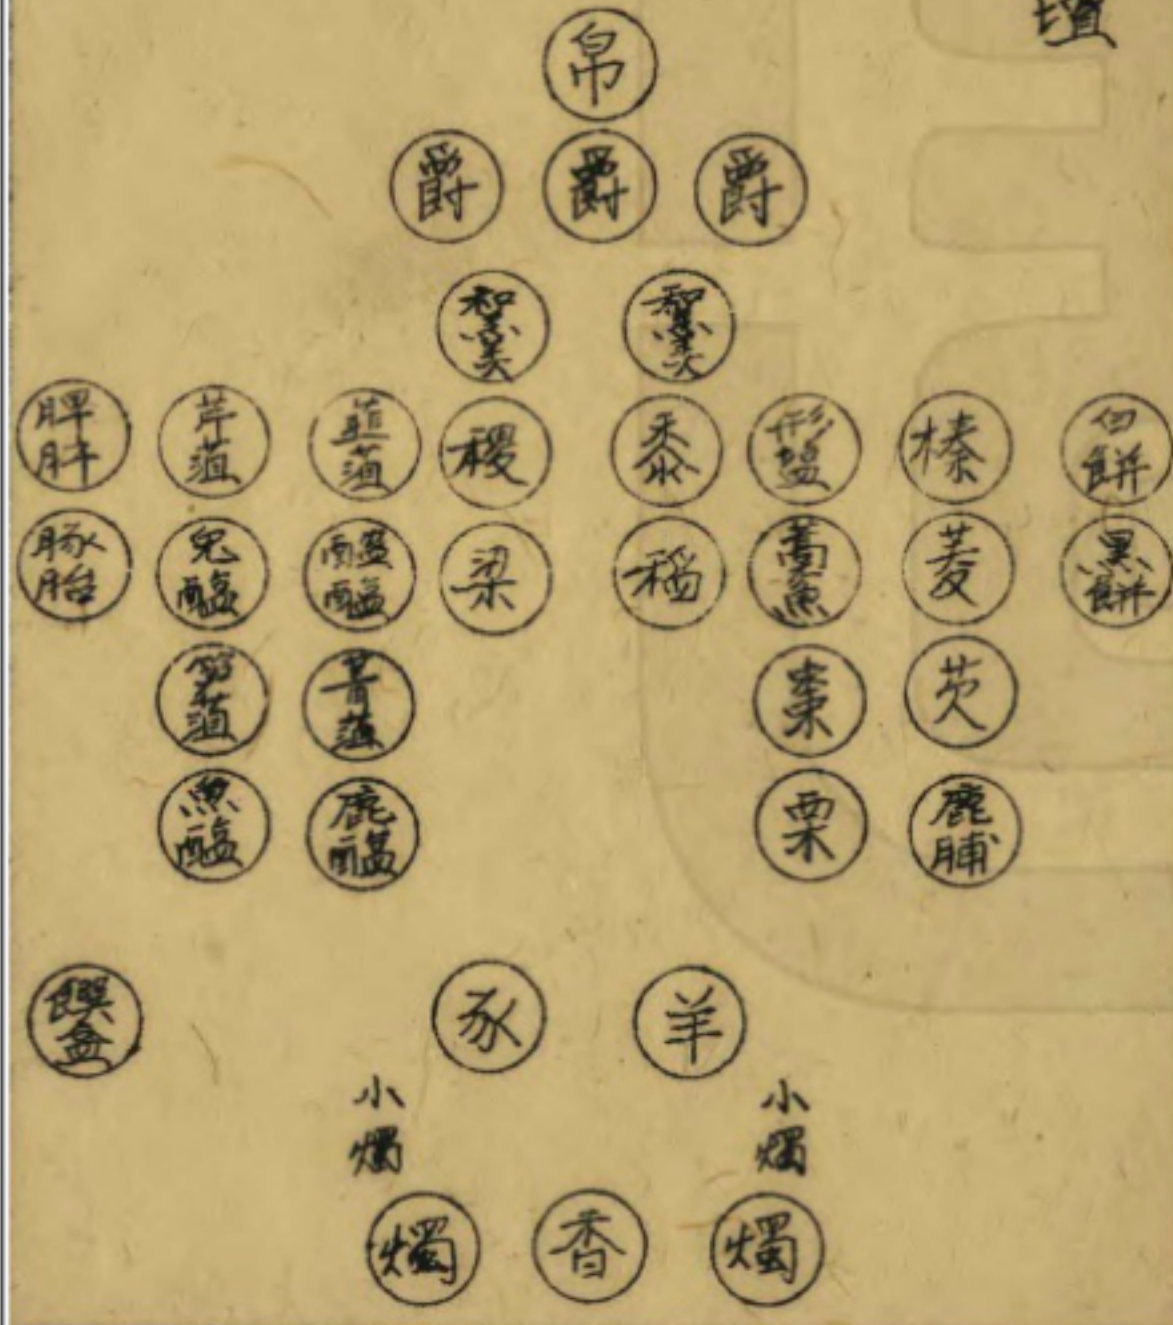 壇
帛
爵 爵 爵
和羹 和羹
脾肝 芹菹 韮菹 稷 黍 形盬 榛 白餠
豚胎 兎醢 醓醢 梁 稻 藁魚 菱 黒餠
笋菹 菁菹 棗 芡
魚醢 鹿醢 栗 鹿脯
饌盆 豕 羊
小燭 小燭
燭 香 燭